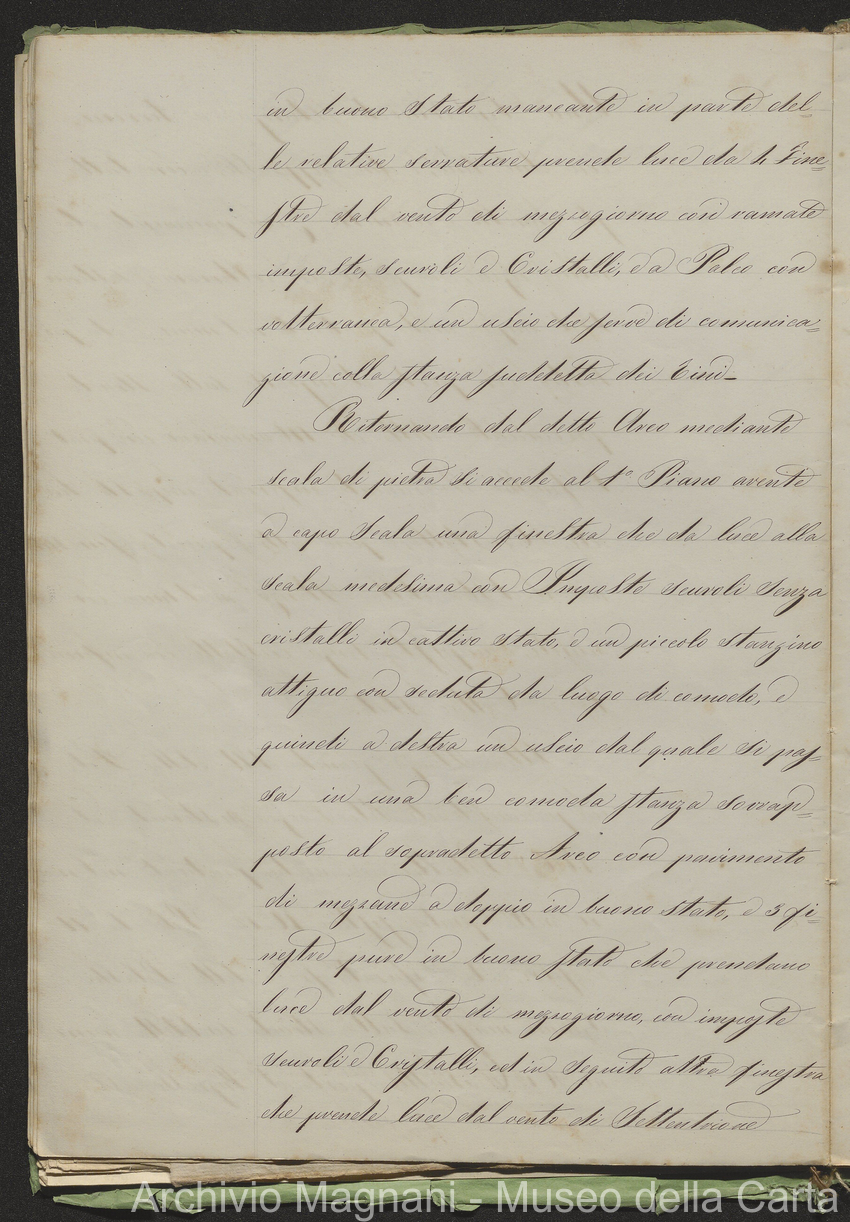 in buono stato mancante in parte del
le relative serrature prende luce da 4 Fine=
stre dal vento di mezzogiorno con ramate
imposte, scuroli e Cristalli, e a Palco con
volterrana, e un uscio che serve di comunica=
zione colla stanza suddetta dei Tini_
Ritornando dal detto Arco mediante
scala di pietra si accede al 1° Piano avente
a capo scala una finestra che da luce alla
scala medesima con Imposte scuroli senza
cristalli in cattivo stato, e un piccolo stanzino
attiguo con seduta da luogo di comodo, e
quindi a destra un uscio dal quale si pas=
sa in una ben comoda stanza sovrap=
posto al sopradetto Arco con pavimento
di mezzane a doppio in buono stato, e 3 fi=
nestre pure in buono stato che prendano
luce dal vento di mezzogiorno, con imposte
scuroli e Cristalli, ed in seguito altra finestra
che prende luce dal vento di Settentrione
Archivio Magnani - Museo della Carta